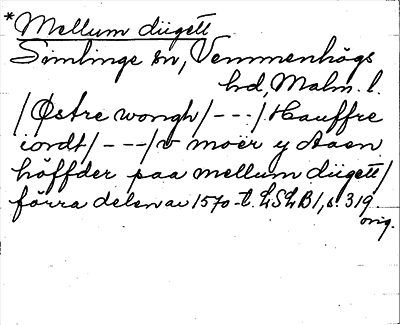 *Mellum diigett
Simlinge sn, Vemmenhögs
hd, Malm. l.
/Østre wongh/---/Hauffre
iordt/---/v moer y Aaen
höffder paa mellum diigett/
förra delen av 1570-t. LSLB1, s. 319.
orig.